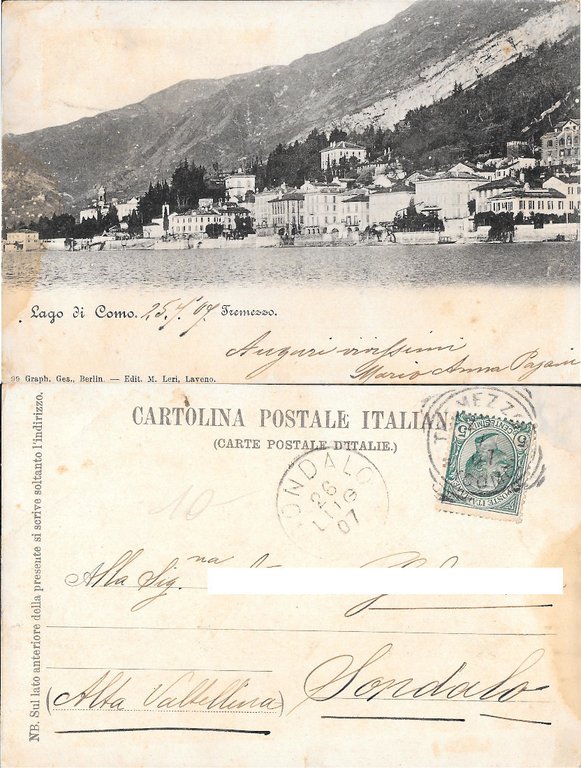 Lago di Como. 25.7.07 Tremezzo.
Auguri vivissimi
Mario Anna
99 Graph. Ges., Berlin. — Edit. M. Leri, Laveno.
CARTOLINA POSTALE ITALIAN
(CARTE POSTALE D'ITALIE.)
TREMEZZO
ONDALO
26
LUG
07
10
Alla Sig.na
(Alta Valtellina)
Sondalo
NB. Sul lato anteriore della presente si scrive soltanto l'indirizzo.